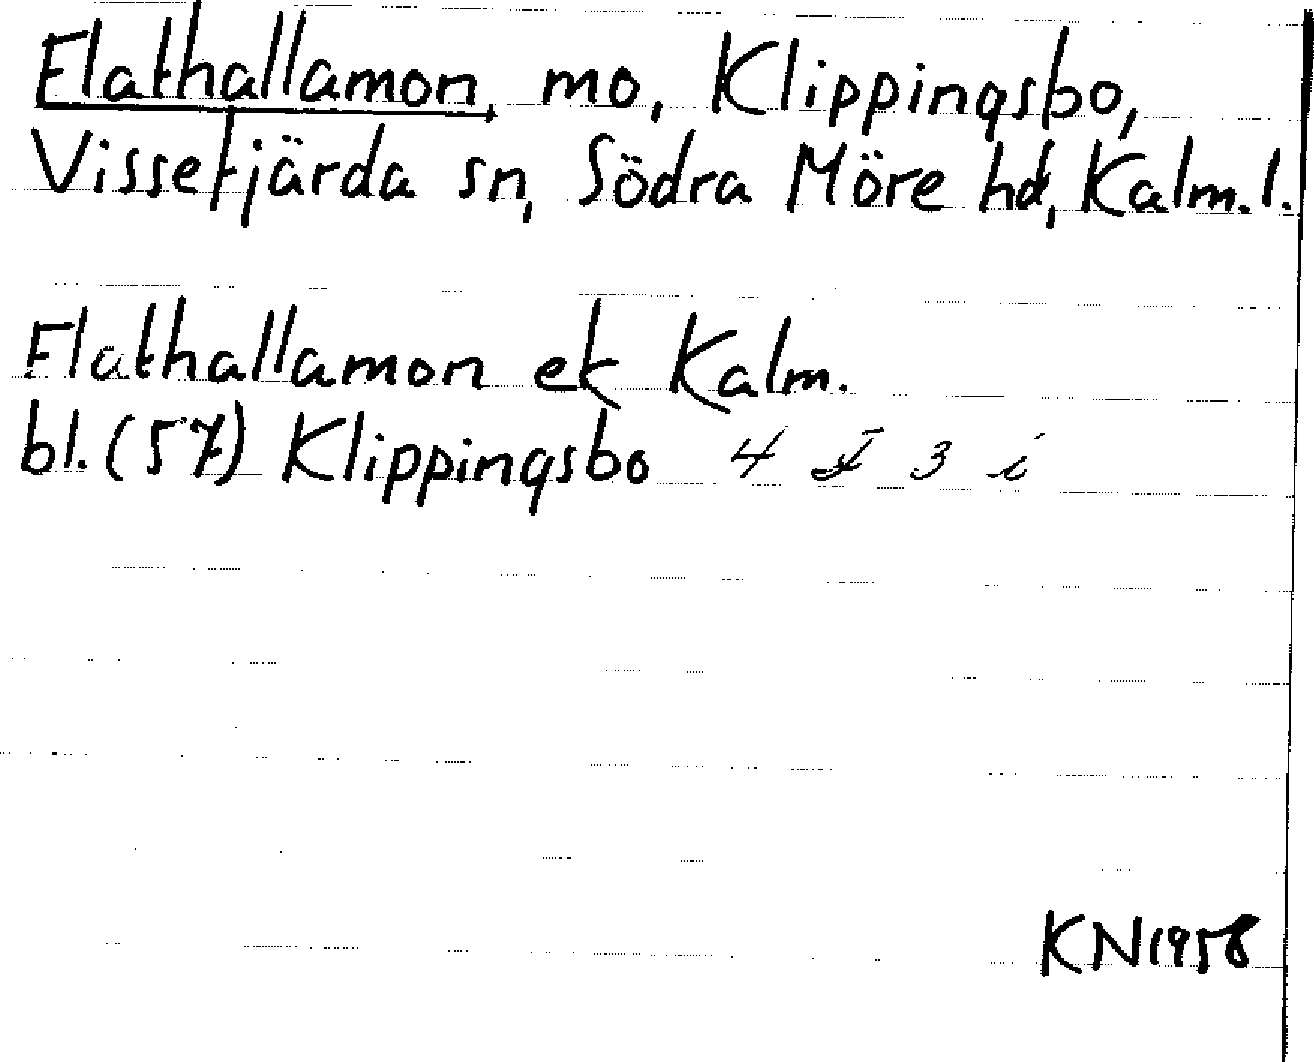 Flathallamon, mo, Klippingsbo,
Vissefjärda sn, Södra Möre hd, Kalm. l.
Flathallamon ek Kalm.
bl. (57) Klippingsbo 4 I 3 i
KN 1958